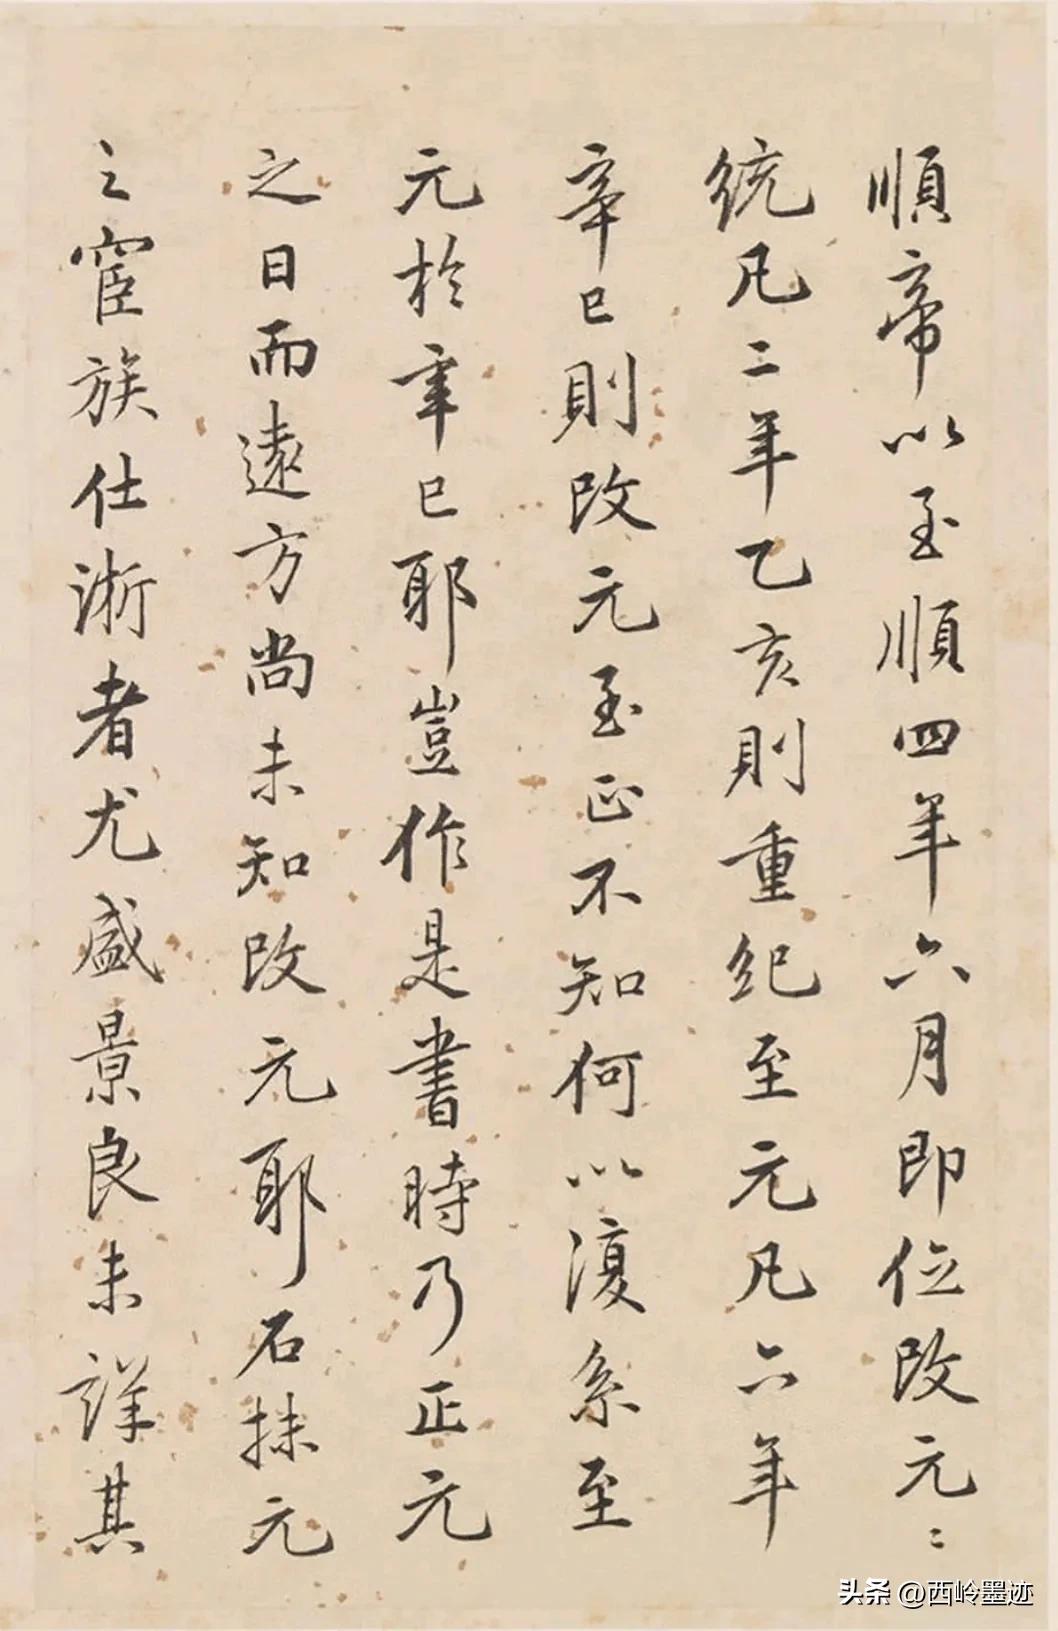 順帝以至順四年六月即位改元〻
統凡二年乙亥則重紀至元凡六年
辛巳則改元至正不知何以復系至
元於辛巳耶豈作是書時乃正元
之日而遠方尚未知改元耶石抹元
之宦族仕浙者尤盛景良未詳其
头条 @西岭墨迹